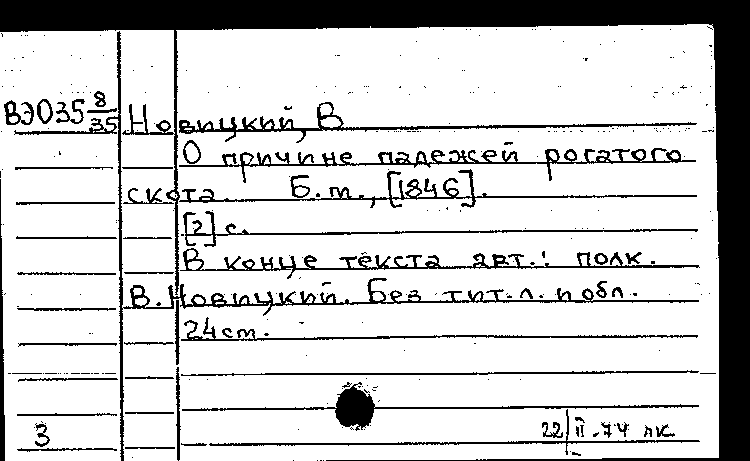 ВЭО35 8/35 Новицкий, В
О причине падежей рогатого
скота. Б.т., [1846].
[2] с.
В конце текста авт.: полк.
В. Новицкий. Без тит. л. и обл.
24 см.
3 22/II-74 лк